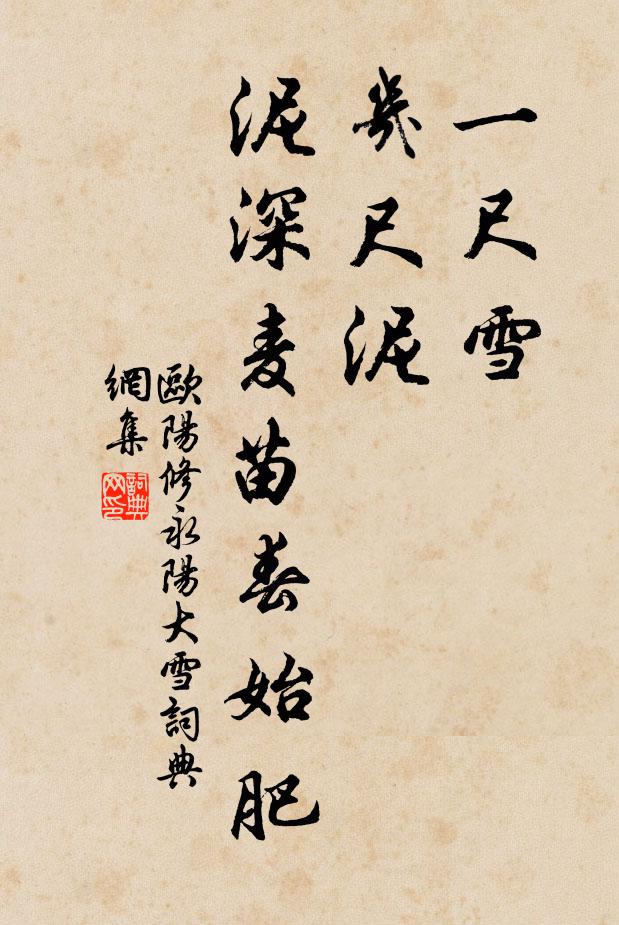 一尺雪
幾尺泥
泥深麦苗春始肥
歐陽修永陽大雪詞典
網集
詞典
网印